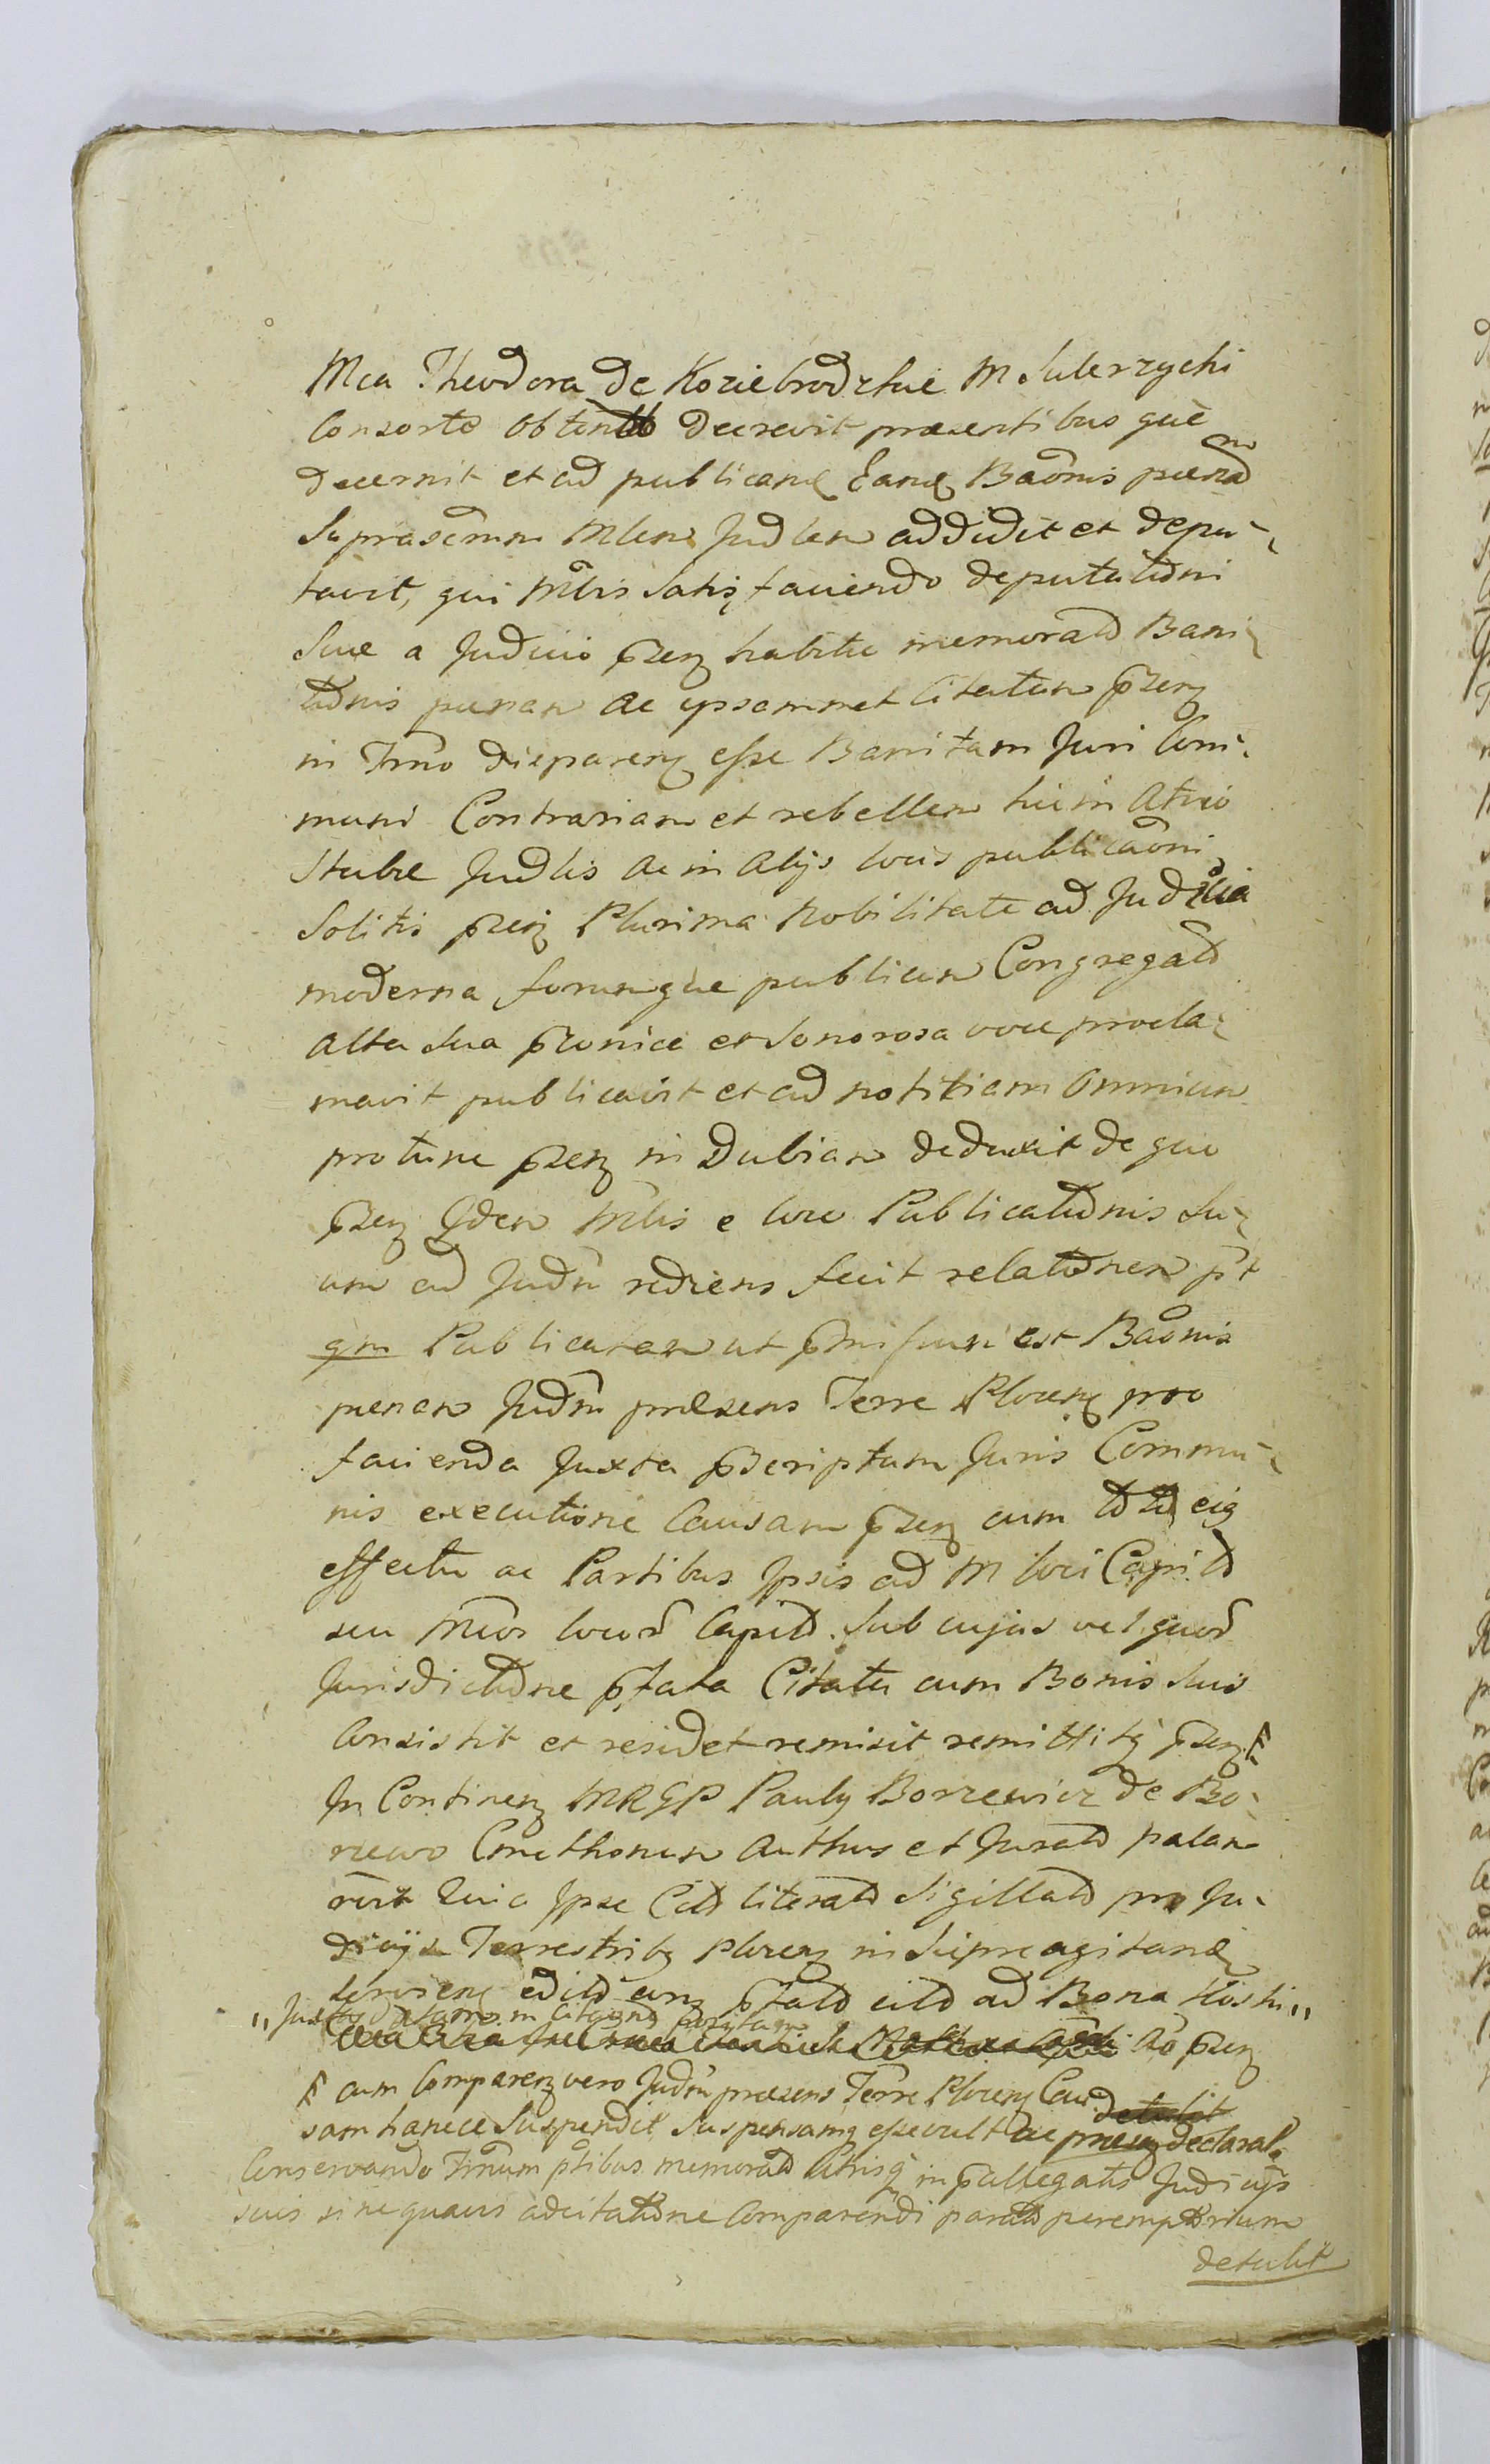 Mca Theodora de Koziebrodzkie M Suterzychi
Consorte obtent decrevit praesentibus què
decernit et ad publicand Eand Baonis paenã
suprascmm Mlem Judlem addidit et depu-
tavit, qui Mtris satisfaciendo deputationi
suae a Judicio pzens habitae memoratã Bani-
tionis paenam ac ipsammet Citatam pzens
in Tmno disparens esse Banitam Juri Com-
muni Contrariam et rebellem hic in Atrio
Stubae Judlis ac in alijs locis publicaoni
solitis pzens Plurima Nobilitate ad Judicia
moderna forumque publicum Congregatã
alta sua pzonica et sonorosa voce procla-
mavit publicavit et ad notitiam omnium
protunc pzens in Dubiam deduxit de quo
pzens idem Mtlis e loco Publicationis su-
am ad Judm rediens fecit relationem pt
qm Publicatam ut pmissum est Baonis
paenam Judm praesens Terrae Plocens pro
facienda Juxta pscriptum Juris Commu-
nis executione Causam pzens cum toto ejq
effectu ac Partibus Ipsis ad M loci Capit
seu Mcos locorũ Capit. sub cujus vel quorũ
Jurisdictione pfata Citata cum Bonis suis
Consistit et residet remisit remittitq pzens
In Continens MRGP Pauly Borzewicz de Bo-
rzewo Cmethonum authus et Jurat palam
Quia Ipse Citt literat sigillat pro Ju-
dicijs Terrestribq Plocens in Sierpc agitand
edit eamq pfat citt ad Bona
Juxta Datam in Citaone positam ao pzens
cum Comparens vero Judm praesens Terrae Plocens Cau detulit
sam hancce suspendit suspensamq esse vult ac praesens declarat
Conservando Tmnum ptibus memorat utrisq in pallegatis Judicijs
suis sine quavis adcitatione Comparendi parat peremptorium
detulit